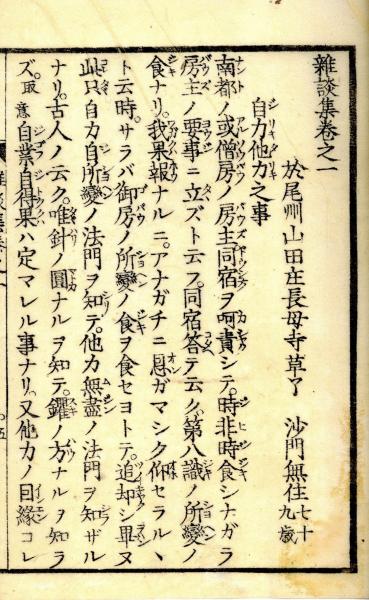 雜談集卷之一
於尾州山田庄長母寺草了 沙門無住七十九歳
自力他力之事
南都ノ或僧房ノ房主同宿ヲ呵責シテ時非時食シナガラ
房主ノ要事ニ立ズト云フ同宿答テ云ク第八識ノ所變ノ
食ナリ我果報ナルニアナガチニ恩ガマシク仰セラルヽ
ト云時サラバ御房ノ所變ノ食ヲ食セヨトテ追却シ畢ヌ
此只自力自所變ノ法門ヲ知テ他力無盡ノ法門ヲ知ザル
ナリ古人ノ云ク唯針ノ圓ナルヲ知テ钁ノ方ナルヲ知ラ
ズ取意自業自得果ハ定マレル事ナリ又他力ノ因縁コレ